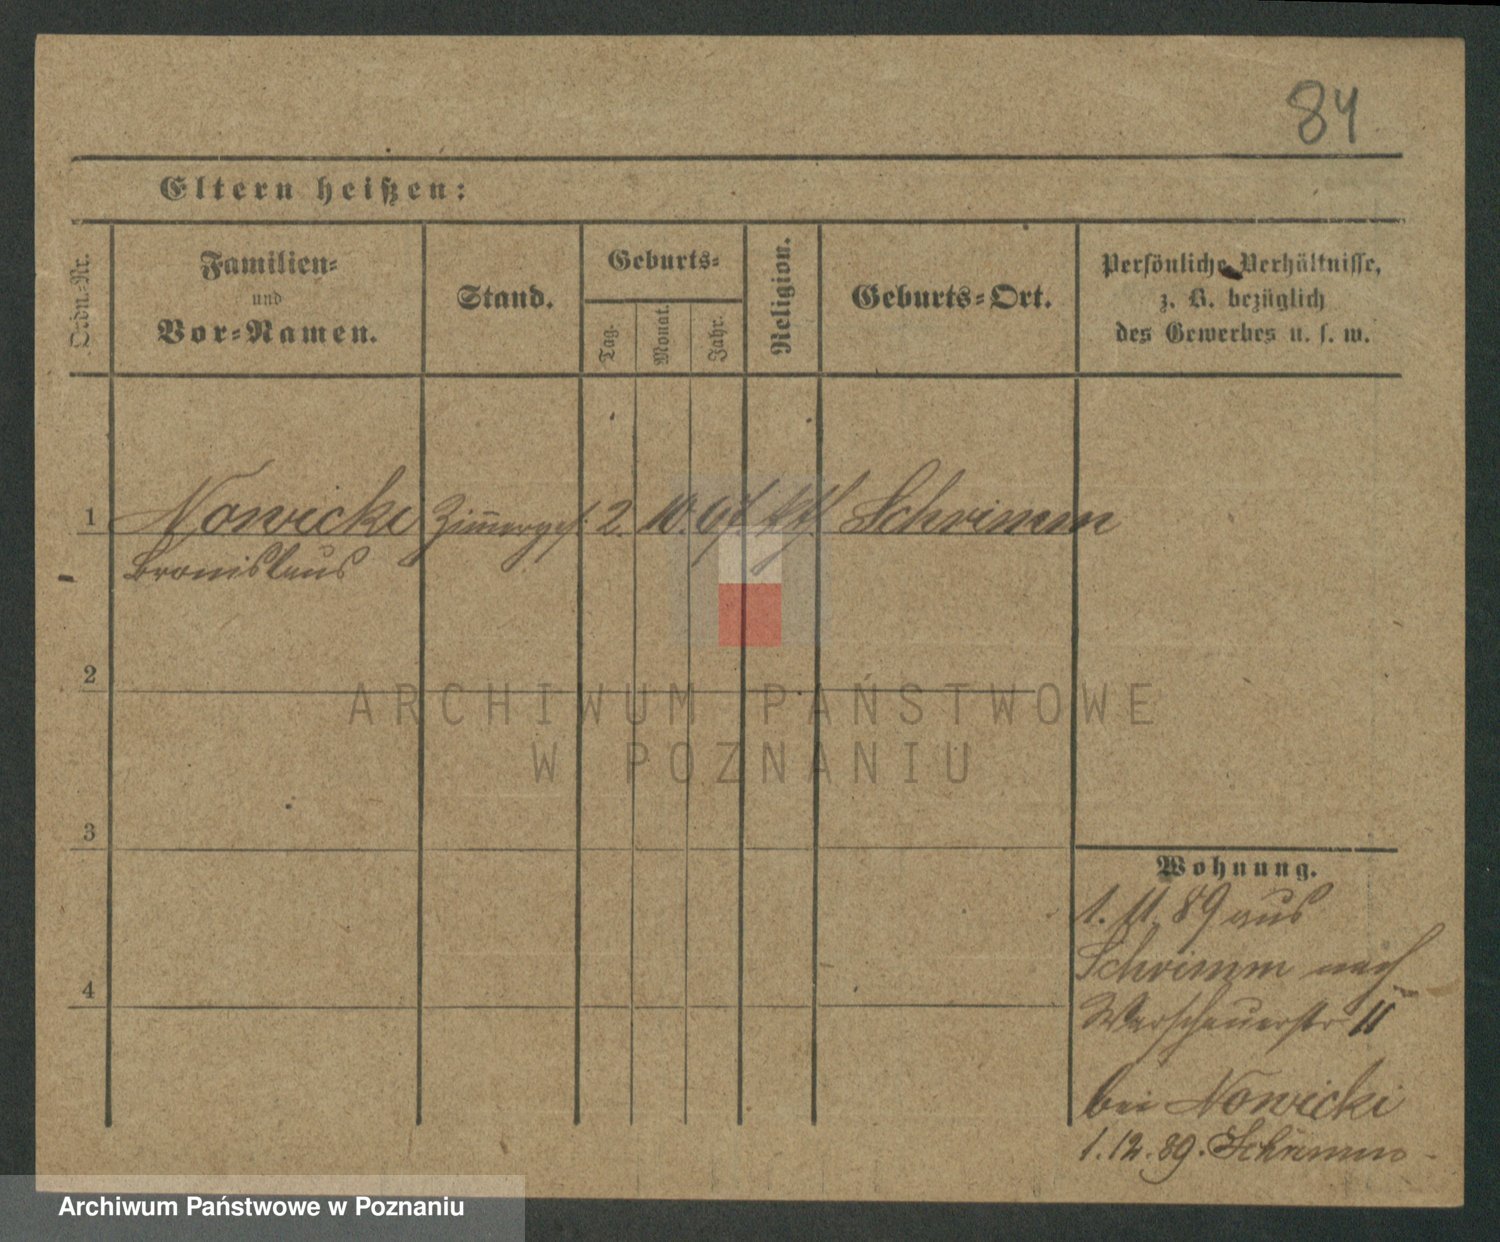 84
Eltern heißen:
Ordn.-Nr.
Familien-
und
Vor-Namen.
Stand.
Geburts-
Tag.
Monat.
Jahr.
Religion.
Geburts-Ort.
Persönliche Verhältnisse,
z. B. bezüglich
des Gewerbes u. s. w.
1 Nowicki Zimmerges. 2. 10. 67. kth. Schrimm
Bronislaus
2
3
4
Wohnung.
1. 11. 89 aus
Schrimm nach
Warschauerstr 11
bei Nowicki
1. 12. 89. Schrimm
ARCHIWUM PAŃSTWOWE
W POZNANIU
Archiwum Państwowe w Poznaniu